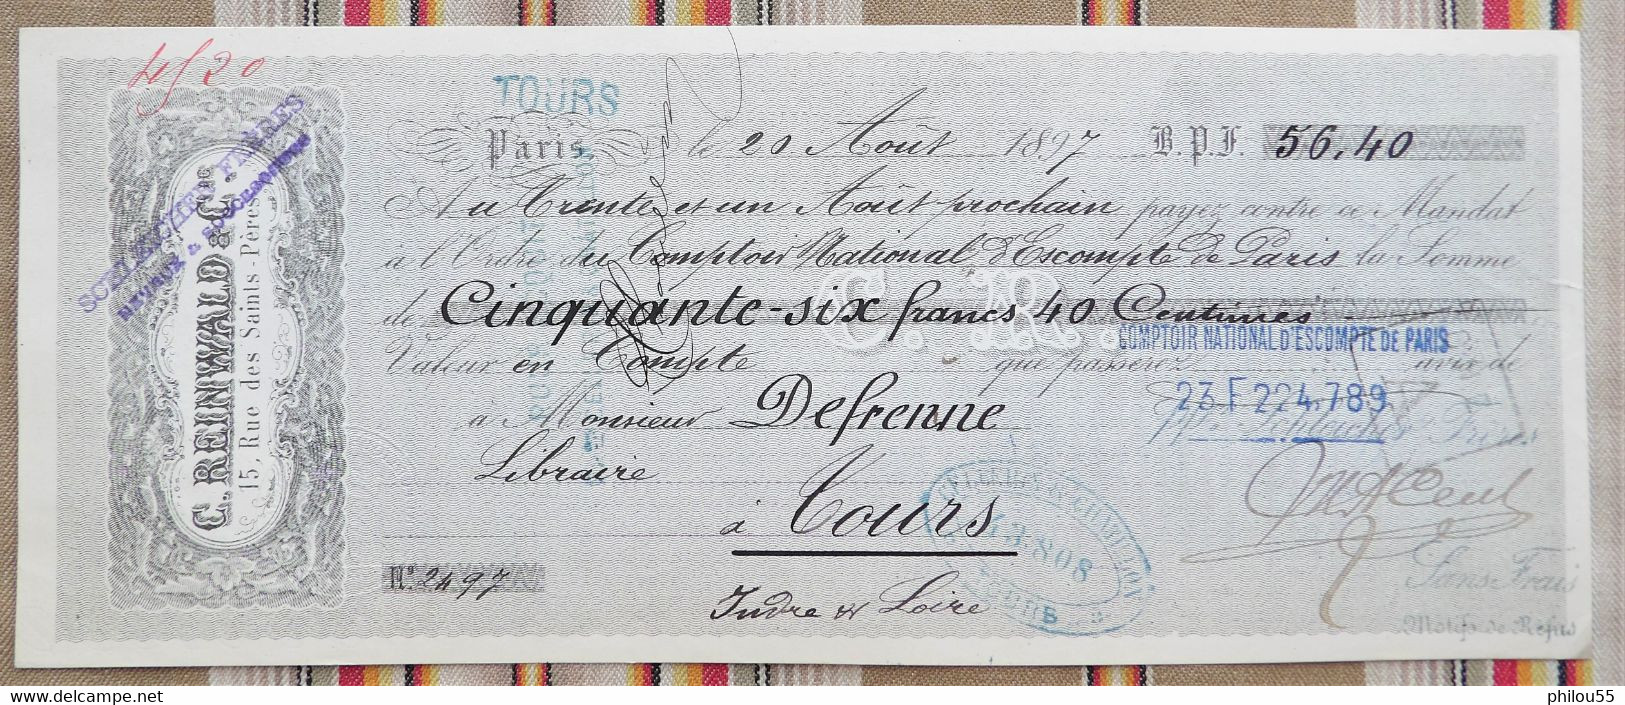 4/20
C. REINWALD & Cie.
15, Rue des Saints-Pères
SCHLEICHER FRÈRES
NEVEUX & SUCCESSEURS
TOURS
Paris, le 20 Août 1897 B.P.F. 56,40
Au Trente et un Août prochain payez contre ce Mandat
à l'Ordre du Comptoir National d'Escompte de Paris la Somme
de Cinquante-six francs 40 Centimes
COMPTOIR NATIONAL D'ESCOMPTE DE PARIS
Valeur en Compte que passerez avis de
23 F 224.789
à Monsieur Defrenne
pp. Schleicher Frères
Libraire
à Tours
43808
TOURS
No. 2497
Indre & Loire
Sans Frais
Motifs de Refus
philou55